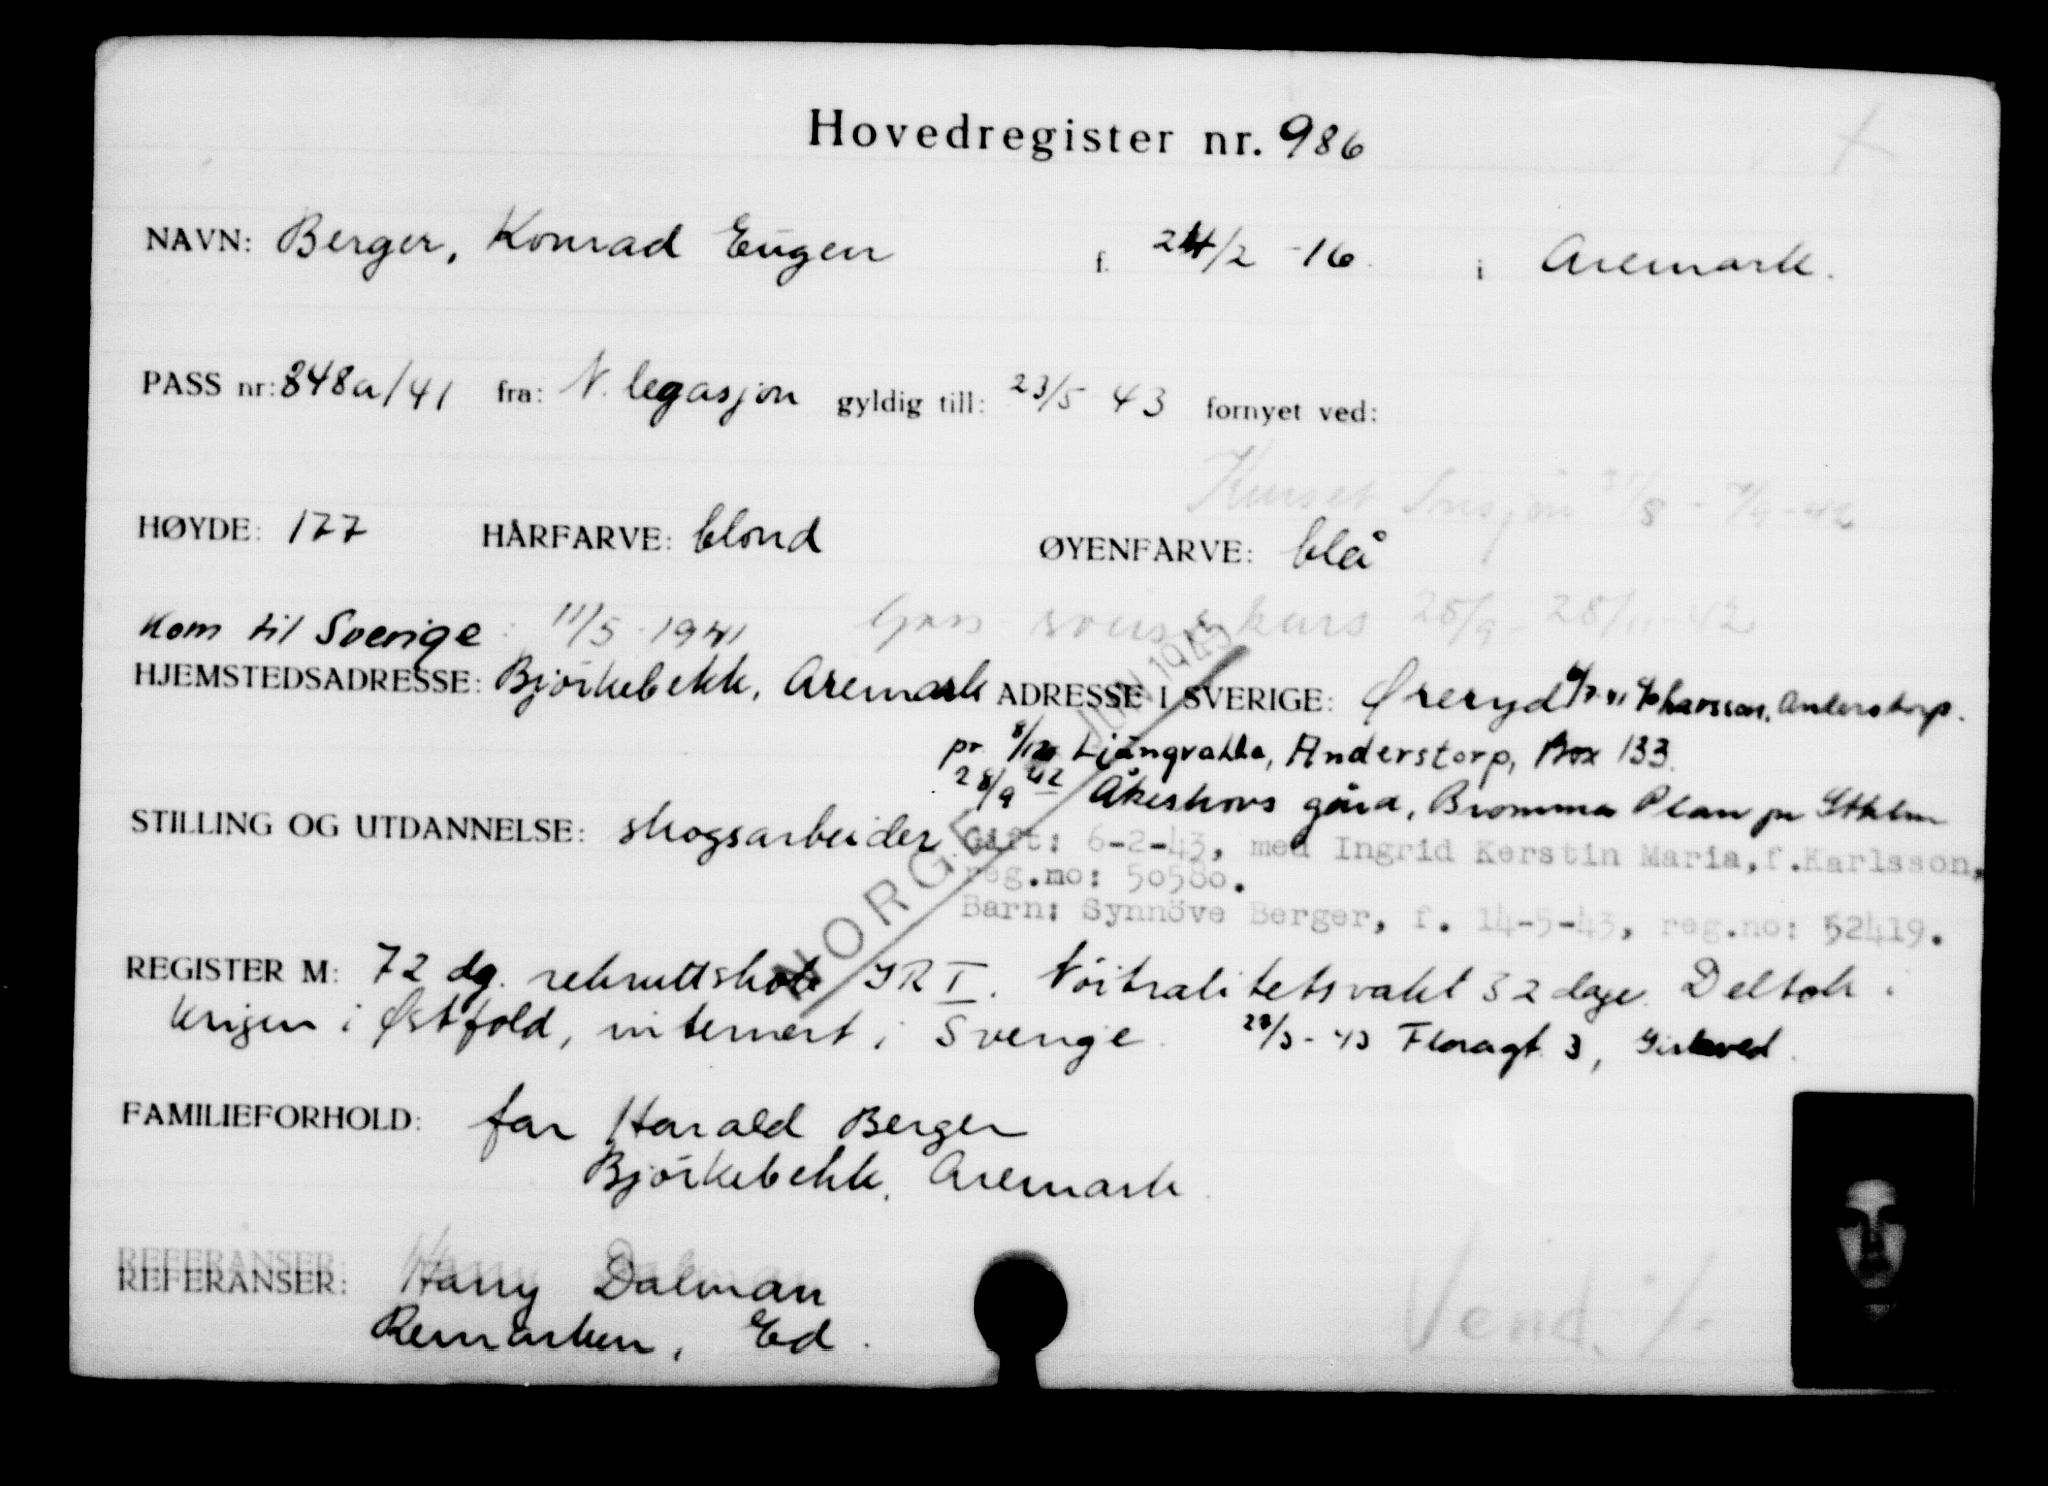 Hovedregister nr. 986
NAVN: Berger, Konrad Eugen f. 24/2 -16. i Aremark.
PASS nr: 848a/41 fra: N. legasjon gyldig till: 23/5 43 fornyet ved:
Kurset Insjön 31/8 - 7/9-42
HØYDE: 177 HÅRFARVE: blond ØYENFARVE: blå
Kom til Sverige: 11/5 1941 kurs 25/9 - 28/11-42
HJEMSTEDSADRESSE: Björkebekk, Aremark ADRESSE I SVERIGE: Øreryd Anderstorp.
pr Anderstorp, Box 133.
28/9 42 Åkeshovs gård, Bromma Plan pr Sthlm
STILLING OG UTDANNELSE: skogsarbeider
Gift: 6-2-43, med Ingrid Kerstin Maria, f. Karlsson,
reg.no: 50580.
Barn: Synnöve Berger, f. 14-5-43, reg.no: 52419.
NORGE JUN 1945
REGISTER M: 72 dg. rekruttskole IR I. Nöitralitetsvakt 32 dage. Deltok i
krigen i Østfold, internert i Sverige. Floragt. 3,
FAMILIEFORHOLD: far Harald Berger
Björkebekk, Aremark.
REFERANSER: Harry Dalman
Remarken, Ed.
Vend. ./.